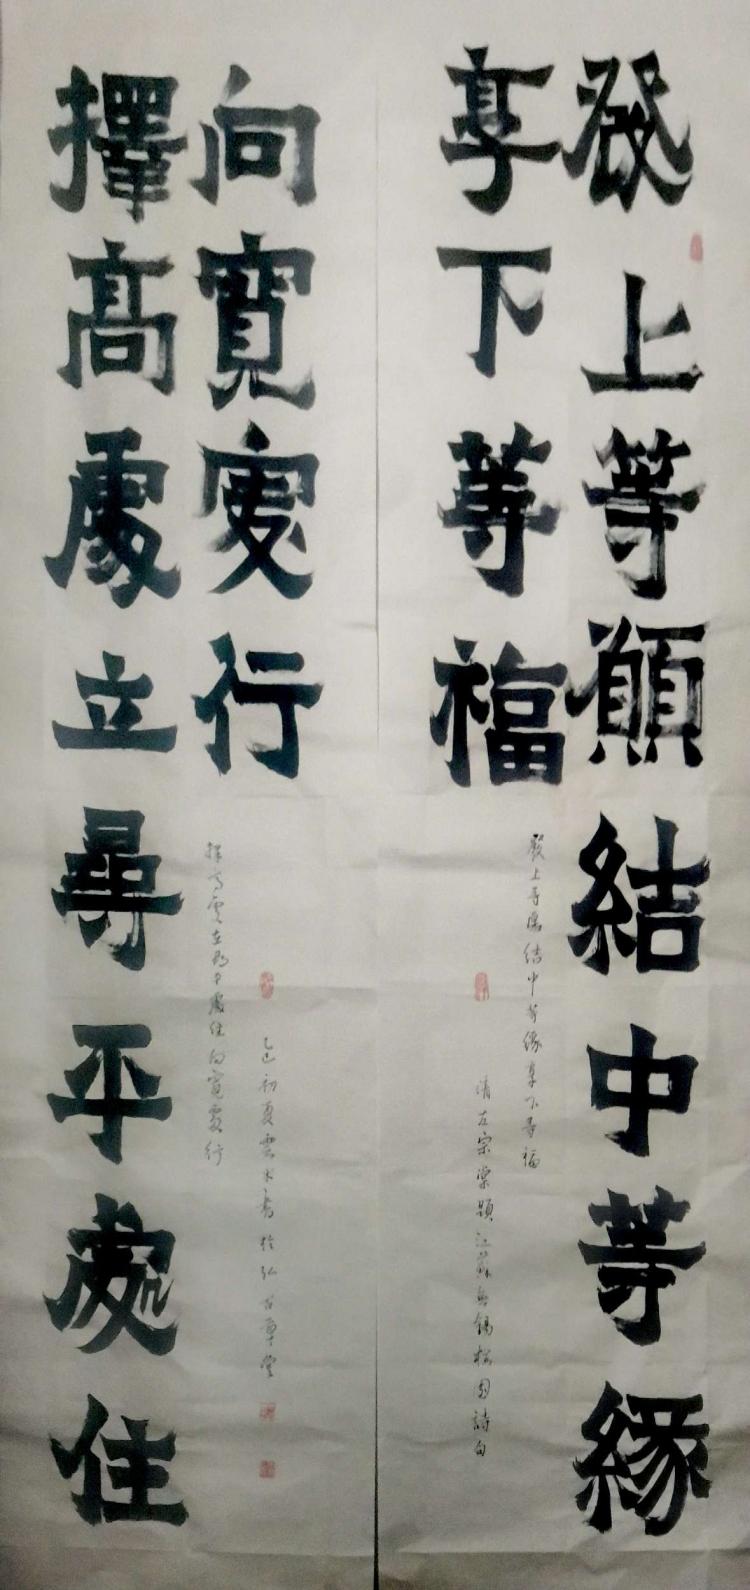 發上等願結中等緣
享下等福
發上等愿结中等缘享下等福
清左宗棠题江蘇無锡梅园詩句
擇高處立尋平處住
向寬處行
擇高處立尋平處住向寬處行
乙巳初夏雲水書於弘古草堂